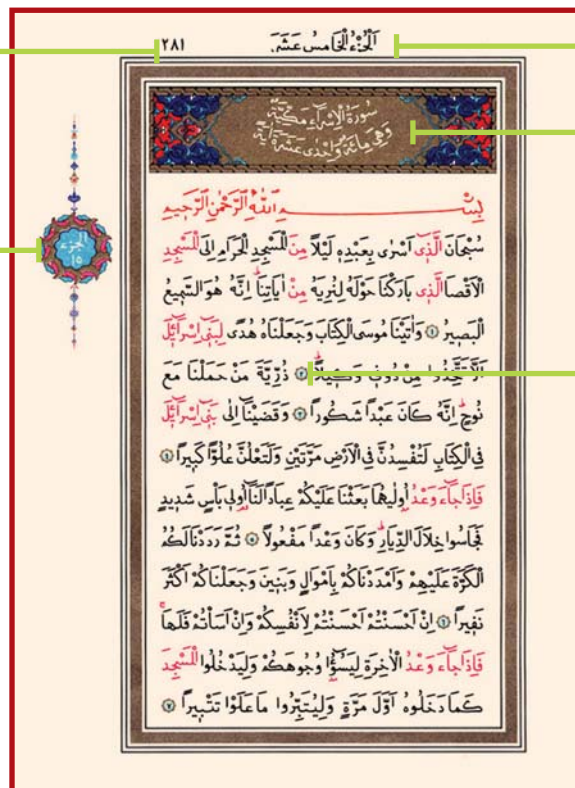 ٢٨١ اَلْجُزْءُ الْخَامِسُ عَشَرَ
سُورَةُ الْاِسْرَٓاءِ مَكِّيَّةٌ
وَهِيَ مِائَةٌ وَاِحْدٰى عَشْرَةَ اٰيَةً
بِسْمِ اللّٰهِ الرَّحْمٰنِ الرَّحٖيمِ
سُبْحَانَ الَّذٖٓى اَسْرٰى بِعَبْدِهٖ لَيْلًا مِنَ الْمَسْجِدِ الْحَرَامِ اِلَى الْمَسْجِدِ
الْاَقْصَا الَّذٖى بَارَكْنَا حَوْلَهُ لِنُرِيَهُ مِنْ اٰيَاتِنَاۜ اِنَّهُ هُوَ السَّمٖيعُ
الْبَصٖيرُ ۝١ وَاٰتَيْنَا مُوسَى الْكِتَابَ وَجَعَلْنَاهُ هُدًى لِبَنٖٓى اِسْرَٓائٖلَ
اَلَّا تَتَّخِذُوا مِنْ دُونٖى وَكٖيلًاۜ ۝٢ ذُرِّيَّةَ مَنْ حَمَلْنَا مَعَ
نُوحٍۜ اِنَّهُ كَانَ عَبْدًا شَكُورًا ۝٣ وَقَضَيْنَٓا اِلٰى بَنٖٓى اِسْرَٓائٖلَ
فِى الْكِتَابِ لَتُفْسِدُنَّ فِى الْاَرْضِ مَرَّتَيْنِ وَلَتَعْلُنَّ عُلُوًّا كَبٖيرًا ۝٤
فَاِذَا جَٓاءَ وَعْدُ اُو۫لٰيهُمَا بَعَثْنَا عَلَيْكُمْ عِبَادًا لَنَٓا اُو۬لٖى بَأْسٍ شَدٖيدٍ
فَجَاسُوا خِلَالَ الدِّيَارِۜ وَكَانَ وَعْدًا مَفْعُولًا ۝٥ ثُمَّ رَدَدْنَا لَكُمُ
الْكَرَّةَ عَلَيْهِمْ وَاَمْدَدْنَاكُمْ بِاَمْوَالٍ وَبَنٖينَ وَجَعَلْنَاكُمْ اَكْثَرَ
نَفٖيرًا ۝٦ اِنْ اَحْسَنْتُمْ اَحْسَنْتُمْ لِاَنْفُسِكُمْ وَاِنْ اَسَأْتُمْ فَلَهَاۜ
فَاِذَا جَٓاءَ وَعْدُ الْاٰخِرَةِ لِيَسُٓؤُ۫ا وُجُوهَكُمْ وَلِيَدْخُلُوا الْمَسْجِدَ
كَمَا دَخَلُوهُ اَوَّلَ مَرَّةٍ وَلِيُتَبِّرُوا مَا عَلَوْا تَتْبٖيرًا ۝٧
الجزء
١٥